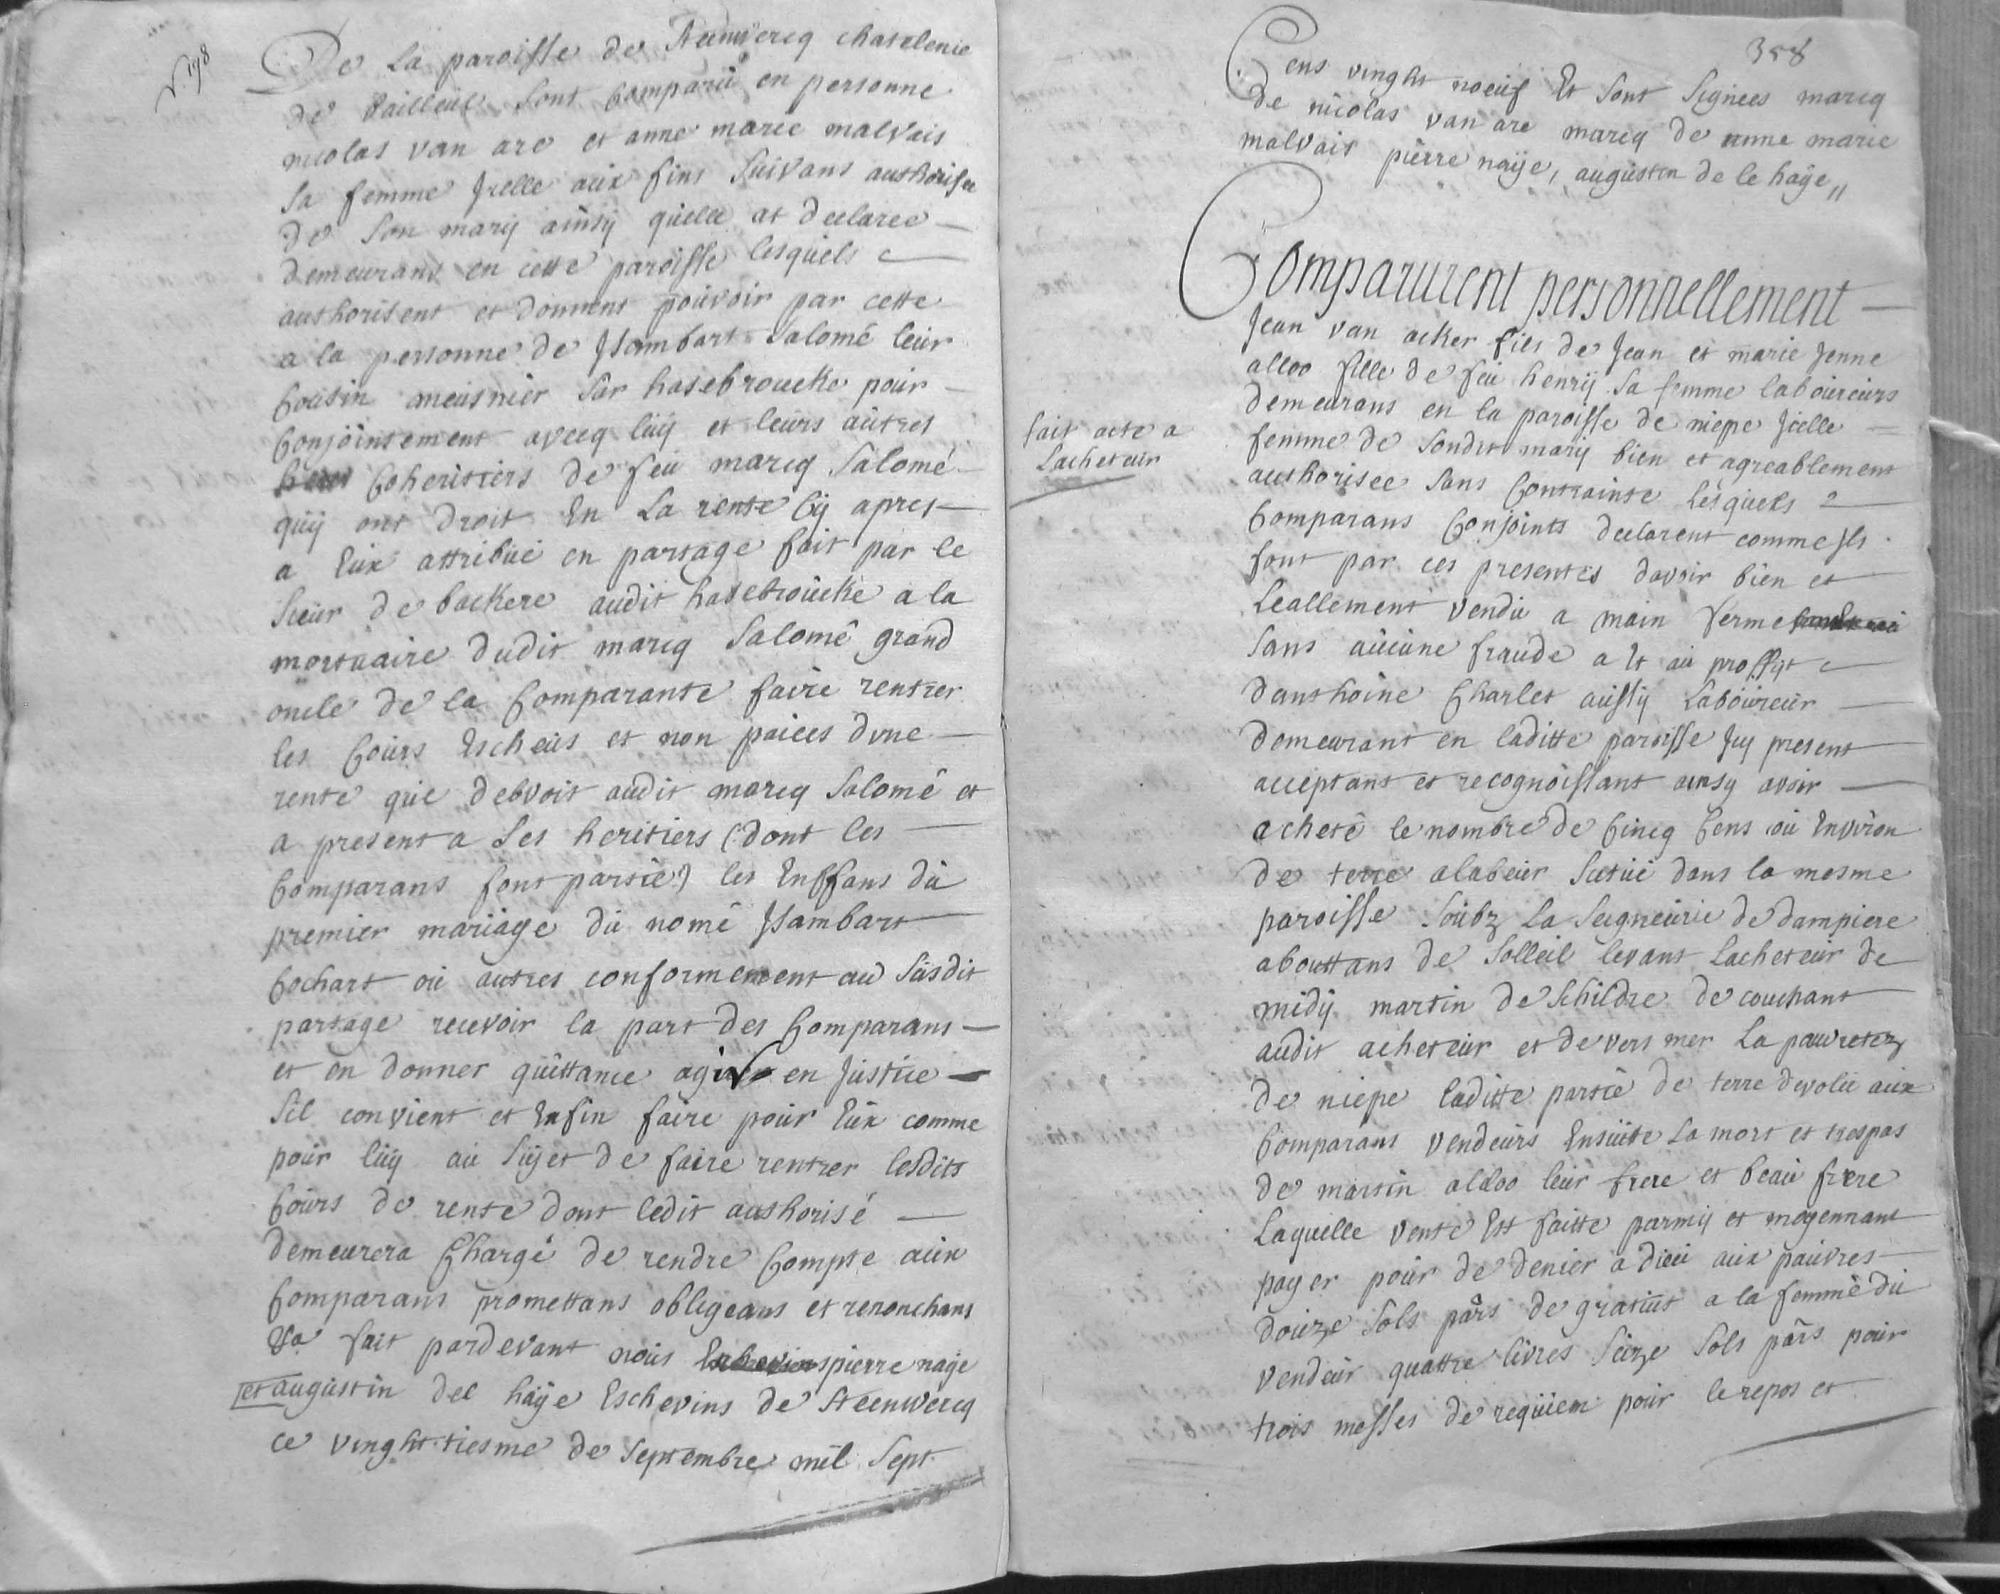 N. 198
De la paroisse de Steenwercq chatelenie
de Bailleul sont comparu en personne
nicolas van are et anne marie malvais
sa femme Jcelle aux fins suivans authorisee
de son marÿ ainsÿ quelle at declaree
demeurans en cette paroisse lesquels
authorisent et donnent pouvoir par cette
a la personne de Jsambart Salomé leur
Cousin meusnier sur hasebroucke pour
Conjointement avecq luÿ et leurs autres
Coheritiers de feu marcq Salomé
quÿ ont droit En La rente cÿ apres
a Eux attribué en partage fait par le
Sieur de backere audit hasebroucke a la
mortuaire dudit marcq Salomé grand
oncle de la Comparante faire rentrer
les Cours Escheus et non paiees dvne
rente que debvoit audit marcq Salomé et
a present a ses heritiers (: dont les
Comparans font partie) les Enffans du
premier mariage du nomé Jsambart
Cochart ou autres conformement au susdit
partage recevoir la part des Comparans
et en donner quittance agir en Justice
sil convient et Enfin faire pour Eux comme
pour luÿ au sujet de faire rentrer lesdits
Cours de rente dont ledit authorisé
demeurera Chargé de rendre Compte aux
Comparans promettans obligeans et renonchans
&a fait pardevant nous pierre naÿe
et augustin del haÿe Eschevins de Steenwercq
ce vinght. tiesme de septembre mil sept
358
Cens vinght noeuf Et sont signees marcq
de nicolas van are marcq de anne marie
malvais pierre naÿe, augustin de le haÿe,,
Comparurent personnellement
Jean van acker fils de Jean et marie Jenne
alloo fille de feu henrÿ sa femme laboureurs
demeurans en la paroisse de niepe Jcelle
femme de sondit marÿ bien et agreablement
fait acte a
Lacheteur
authorisee sans Contrainte lesquels
Comparans Conjoints declarent comme Jls
font par ces presentes davoir bien et
Leallement vendu a main ferme
sans aucune fraude a Et au proffÿt
danthoine Charlet aussÿ Laboureur
demeurant en laditte paroisse Jcÿ present
acceptant et recognoissant ainsy avoir
acheté le nombre de Cincq Cens ou Environ
de terre alabeur scitué dans la mesme
paroisse soubz La Seigneurie de dampiere
abouttans de solleil levant Lacheteur de
midÿ martin de schildre de couchant
audit acheteur et de vers mer La pauvretez
de niepe laditte partie de terre devolue aux
Comparans vendeurs Ensuitte La mort et trespas
de martin alloo leur frere et beau frere
Laquelle vente Est faitte parmÿ et moyennant
payer pour de denier a dieu aux pauvres
douze sols pârs de gratuit a la femme du
vendeur quattre livres seize sols pârs pour
trois messes de requiem pour le repos et